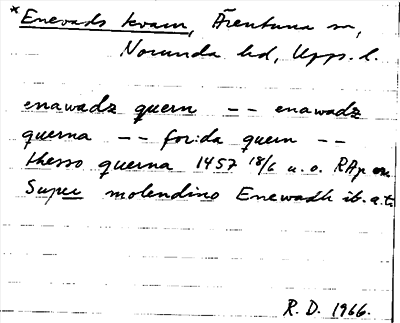 *Enevads kvarn, Ärentuna sn,
Norunda hd, Upps. l.
enawadz quern -- enawadz
querna -- forida quern --
thesso querna 1457 18/6 u.o. RAp
Super molendino Enewadh ib. a.t.
R. D. 1966.